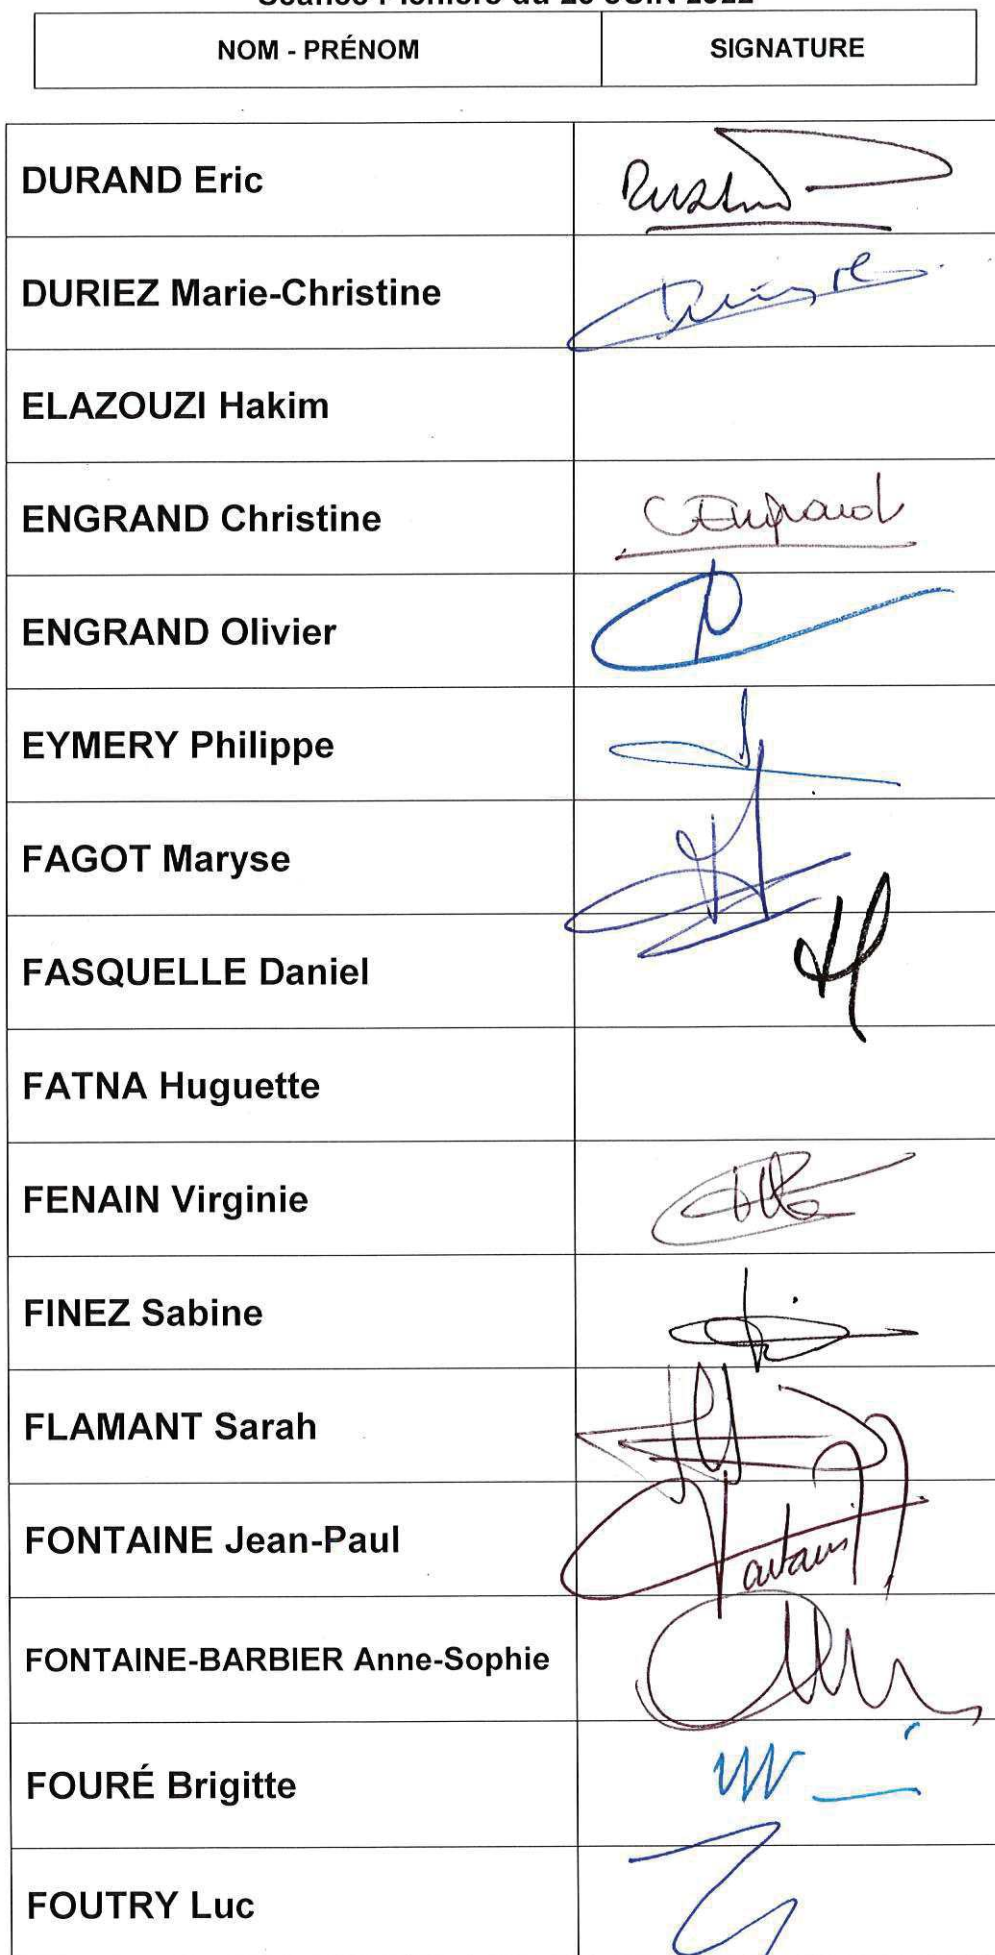 NOM - PRÉNOM SIGNATURE
DURAND Eric
DURIEZ Marie-Christine
ELAZOUZI Hakim
ENGRAND Christine CEngrand
ENGRAND Olivier
EYMERY Philippe
FAGOT Maryse
FASQUELLE Daniel
FATNA Huguette
FENAIN Virginie
FINEZ Sabine
FLAMANT Sarah
FONTAINE Jean-Paul
FONTAINE-BARBIER Anne-Sophie
FOURÉ Brigitte
FOUTRY Luc